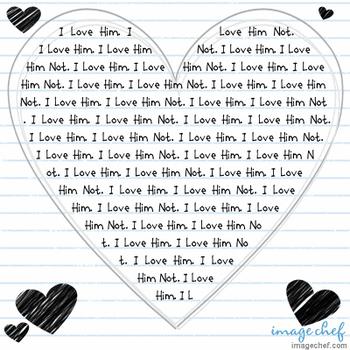 I Love Him. I Love Him Not.
I Love Him. I Love Him Not. I Love Him. I Love
Him Not. I Love Him. I Love Him Not. I Love Him. I Love
Him Not. I Love Him. I Love Him Not. I Love Him. I Love Him
Not. I Love Him. I Love Him Not. I Love Him. I Love Him Not
. I Love Him. I Love Him Not. I Love Him. I Love Him Not.
I Love Him. I Love Him Not. I Love Him. I Love Him Not.
I Love Him. I Love Him Not. I Love Him. I Love Him N
ot. I Love Him. I Love Him Not. I Love Him. I Love
Him Not. I Love Him. I Love Him Not. I Love
Him. I Love Him Not. I Love Him. I Love
Him Not. I Love Him. I Love Him No
t. I Love Him. I Love Him No
t. I Love Him. I Love
Him Not. I Love
Him. I L
imagechef
imagechef.com